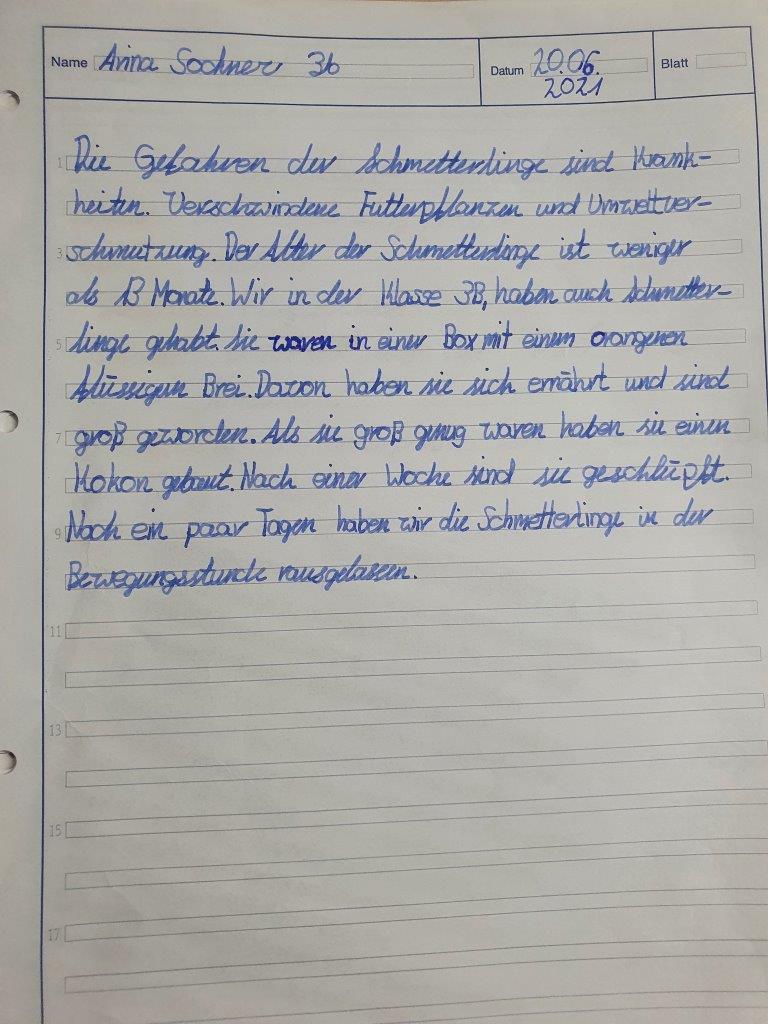 Name Anna Sochner 3b Datum 20.06. Blatt
2021
1 Die Gefahren der Schmetterlinge sind Krank-
heiten. Verschwindene Futterpflanzen und Umweltver-
3 schmutzung. Der Alter der Schmetterlinge ist weniger
als 13 Monate. Wir in der Klasse 3B, haben auch Schmetter-
5 linge gehabt. Sie waren in einer Box mit einem orangenen
flüssigen Brei. Davon haben sie sich ernährt und sind
7 groß geworden. Als sie groß genug waren haben sie einen
Kokon gebaut. Nach einer Woche sind sie geschlüpft.
9 Nach ein paar Tagen haben wir die Schmetterlinge in der
Bewegungsstunde rausgelassen.
11
13
15
17